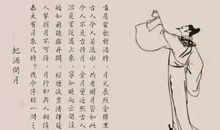 把酒问月
青天有月來幾時我今停杯一問之
人攀明月不可得月行卻與人相隨
皎如飛鏡臨丹闕綠煙滅盡清輝發
但見宵從海上來寧知曉向雲間沒
今人不見古時月今月曾經照古人
古人今人若流水共看明月皆如此
唯願當歌對酒時月光長照金樽裏